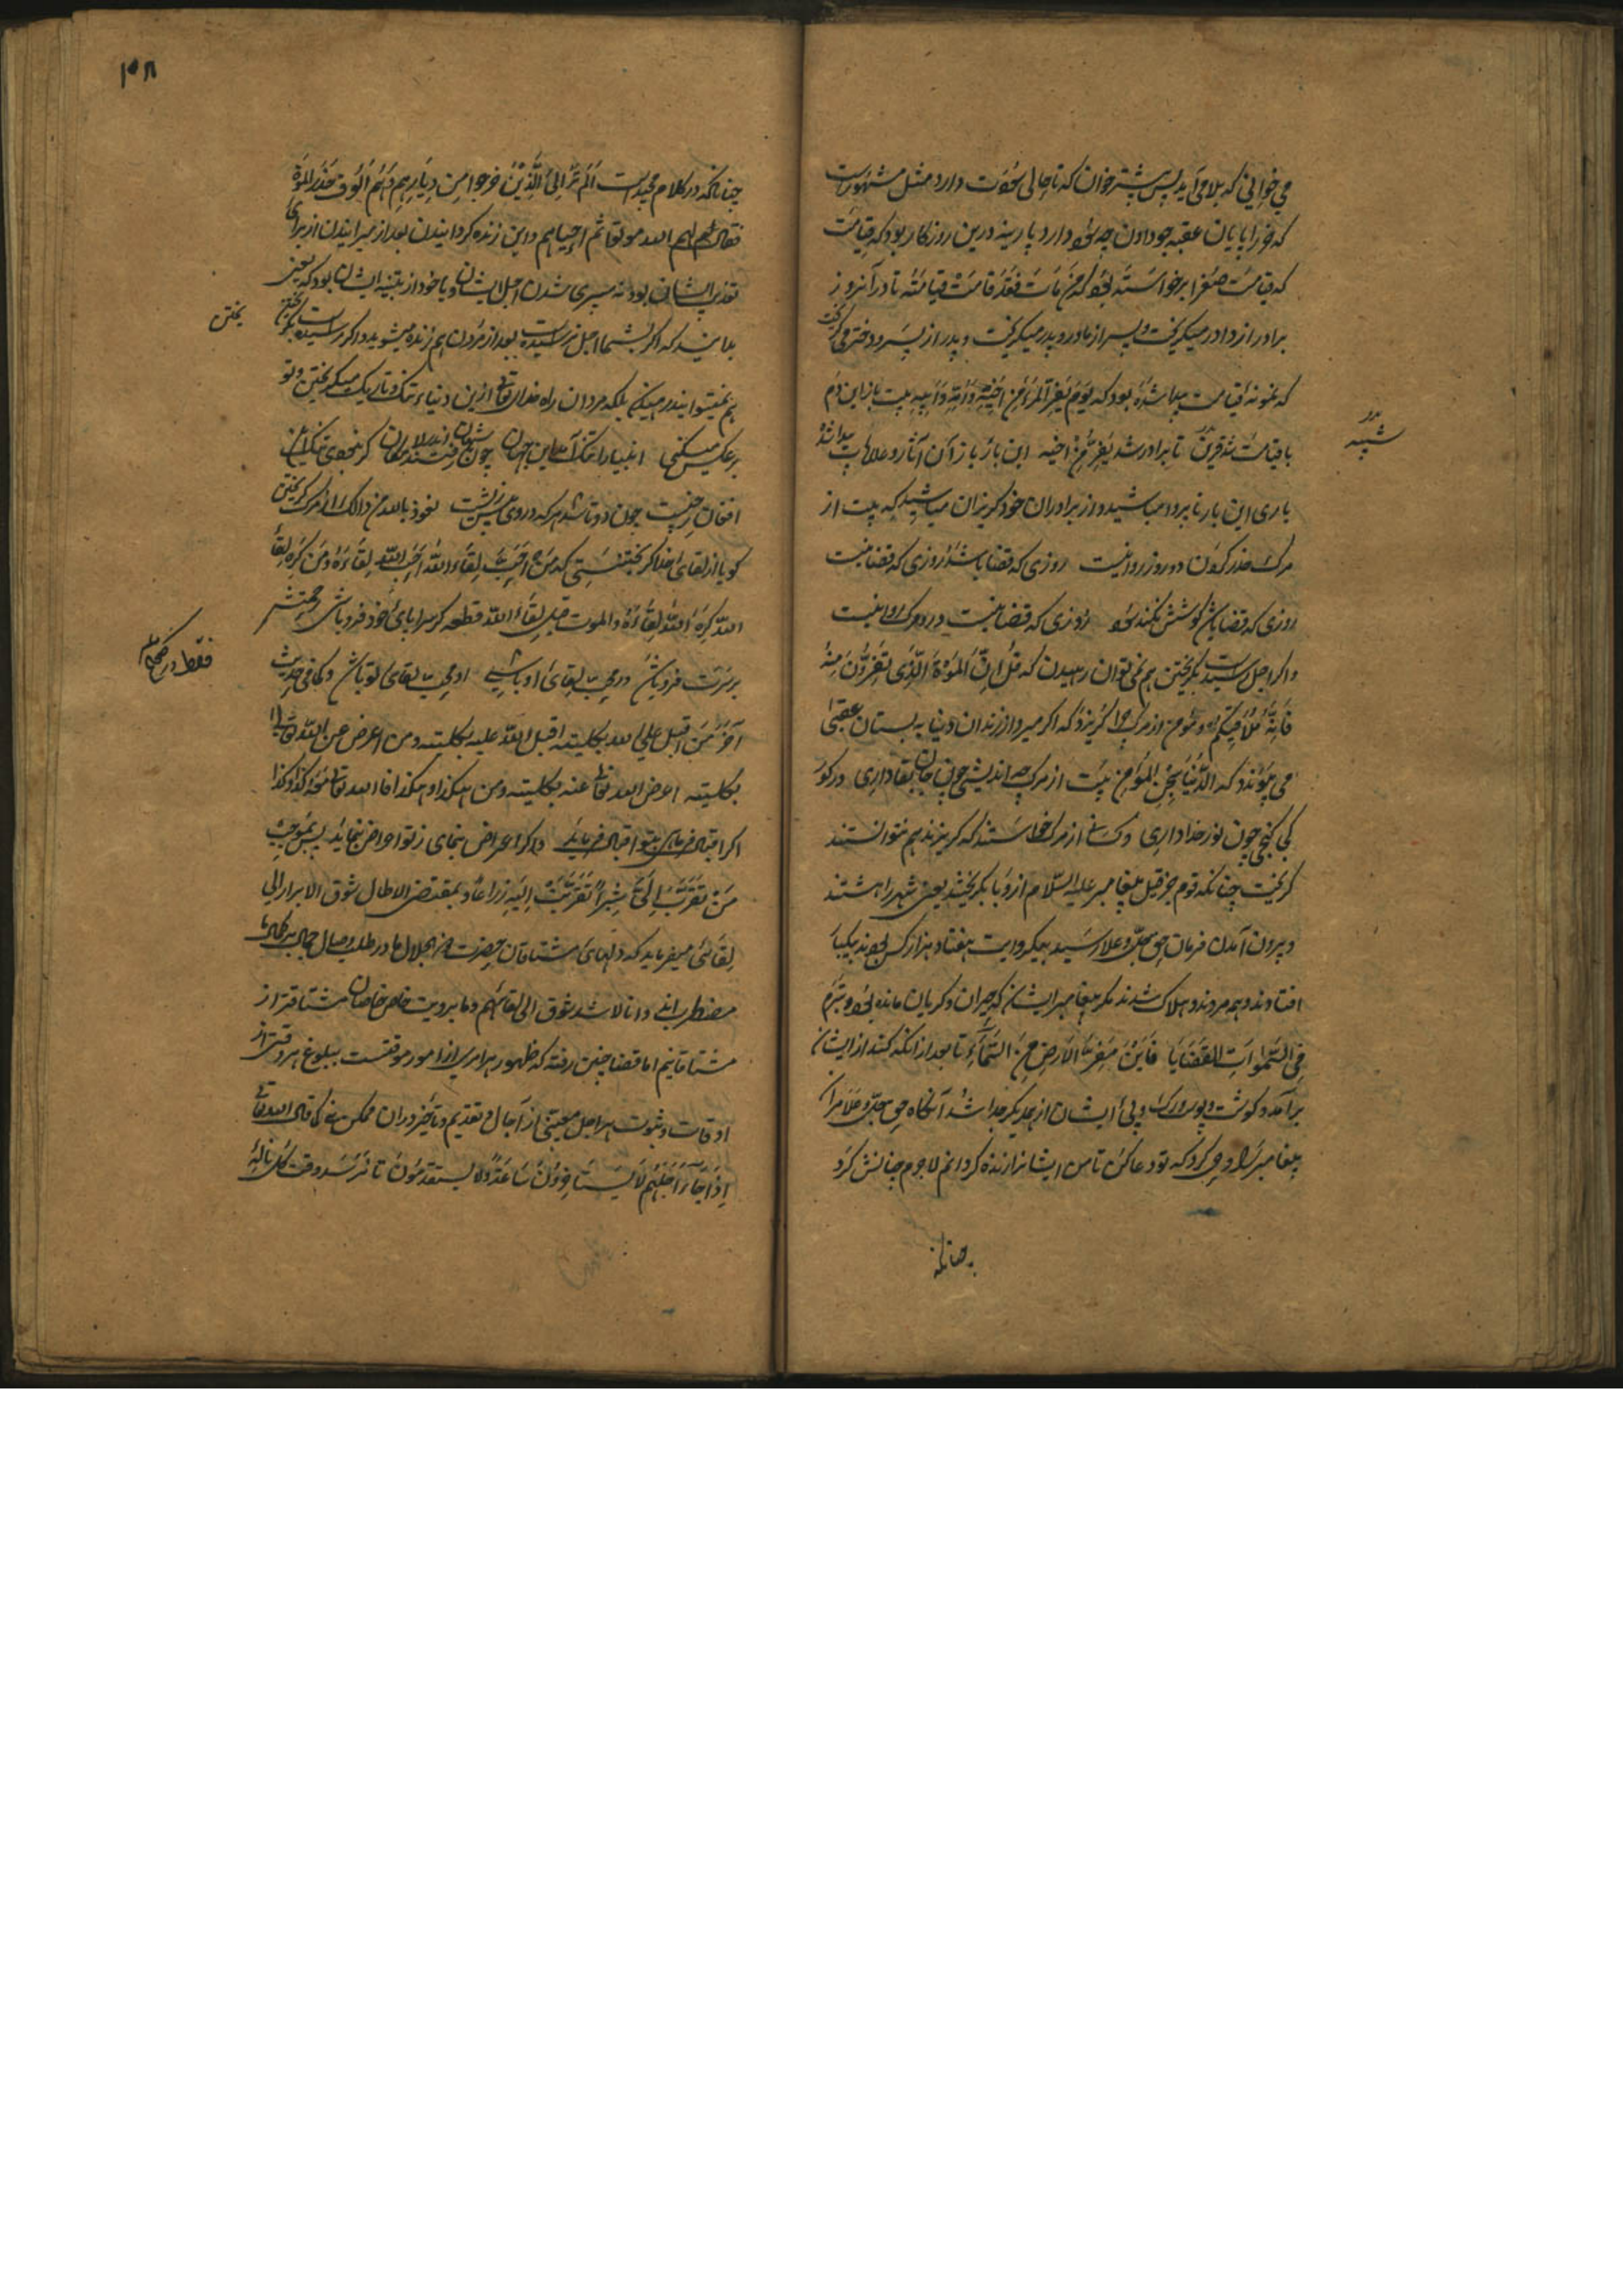 می خوانی که بلا می آید پس پشتر خوان که تا حالی سخوت دارد مثل مشهورست
که خر را پایان عقبه جو دادن چه سود دارد پارسینه درین روزگار بود که قیامت
که قیامت صغرا برخواسته بود که من مات فقد قامت قیامته تا در آنروز
برادر از دادر میگریخت و پسر از مادر و پدر میگریخت و پدر از پسر و دختر می گریخت
که نمونه قیامت پیدا شده بود که یوم یفر المرء من اخیه و امه و ابیه بیت باز این دم
با قیامت شد قرین تا برادر شد یفر من اخیه این بار باز آن آثار و علامات پیدا شد
باری این بار نا پروا مباشید و از برادران خود گریزان مباشید که بیت از
مرگ حذر کردن دو روز روا نیست روزی که قضا باشد روزی که قضا نیست
روزی که قضا باشد کوشش نکند سود روزی که قضا نیست درو مرگ روا نیست
و اگر اجل رسیدست بگریختن هم نمی توان رهیدن که قل ان الموت الذی تفرون منه
فانه ملاقیکم و مؤمن از مرگ چرا گریزد که اگر میرد از زندان دنیا به بستان عقبی
می پیوندد که الدنیا سجن المؤمن بیت از مرگ چه اندیشی چون جان بقا داری در گور
کی گنجی چون نور خدا داری و کسانی از مرگ خواستند که گریزند هم نتوانستند
گریخت چنانکه قوم حزقیل پیغامبر علیه السلام از وبا بگریختند یعنی شهر را هشتند
و بیرون آمدن فرمان حق جل و علا رسید بیکروایت هفتاد هزار کس بودند بیکبار
افتادند و همه مردند و هلاک شدند مگر پیغامبر ایشان که حیران و گریان مانده بود و تبرم
فی السموات القضایا فاین مفر الارض من السماء تا بعد از آنکه گند از ایشان
برآمد و گوشت و پوست و رگ و پی ایشان از همدیگر جدا شد آنگاه حق جل و علا مر آن
پیغامبر را وحی کرد که تو دعا کن تا من ایشانرا زنده گردانم لاجرم چنانش کرد
چنانکه
شبیه
۳۸
چنانکه در کلام مجیدست الم تر الی الذین خرجوا من دیارهم و هم الوف حذر الموت
فقال لهم الله موتوا ثم احیاهم و این زنده گردانیدن بعد از میرانیدن از برای
تعذیب ایشان بود نه سپری شدن اجل ایشان و یا خود از تنبیه ایشان بود که یعنی
بدانید که اگر شما اجل نرسیده است بعد از مردن هم زنده میشوید و اگر رسیده است بگریختن
هم نمیتوانید رهیدن بلکه مردان راه خدای تعالی ازین دنیاء تنگ و تاریک میگریختن و تو
برعکس میکنی انبیا را تنگ آمد این جهان چون شهان رفتند اندر لامکان
افغان چون دو تا شد هر که در وی نعوذ بالله من ذالک از مرگ گریختن
گویا از لقای خدا گریختنستی که من احب لقاء الله احب الله لقاءه و من کره لقاء
الله کره الله لقاءه و الموت قبل لقاء الله قطعه گر سراپای خود فرو باشی
فرو باشی در محب لقای او باشی او محب لقای تو باشد و کما فی حدیث
آخر من اقبل علی الله بکلیته اقبل الله علیه بکلیته و من اعرض عن الله تعالی
بکلیته اعرض الله تعالی عنه بکلیته و من هکذا و هکذا فالله تعالی نحوه کذا و کذا
اگر اقبال فرمای بتو اقبال فرماید و اگر اعراض نمای ز تو اعراض نماید پس بموجب
من تقرب الی شبرا تقربت الیه ذراعا و بمقتضی الا طال شوق الابرار الی
لقائی میفرماید که دلهای مشتاقان حضرت ذو الجلال ما در طلب وصال جمال
مضطرب اند و انا لاشد شوقا الی لقائهم و ما برویت خاص خاصان مشتاقتر از
مشتاقانیم اما قضا چنین رفته که ظهور هر امری از امور موقتست ببلوغ هر وقتی از
اوقات و ثبوت هر اجل معینی از آجال و تقدیم و تاخیر در آن ممکن نه کما قال الله تعالی
اذا جاء اجلهم لا یستاخرون ساعة و لا یستقدمون تا نرسد وقت کل